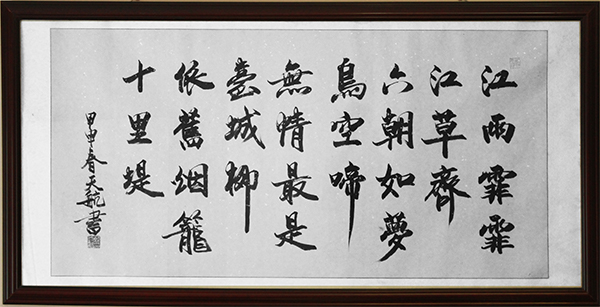 江雨霏霏
江草齊
六朝如夢
鳥空啼
無情最是
臺城柳
依舊烟籠
十里堤
甲申春天航書